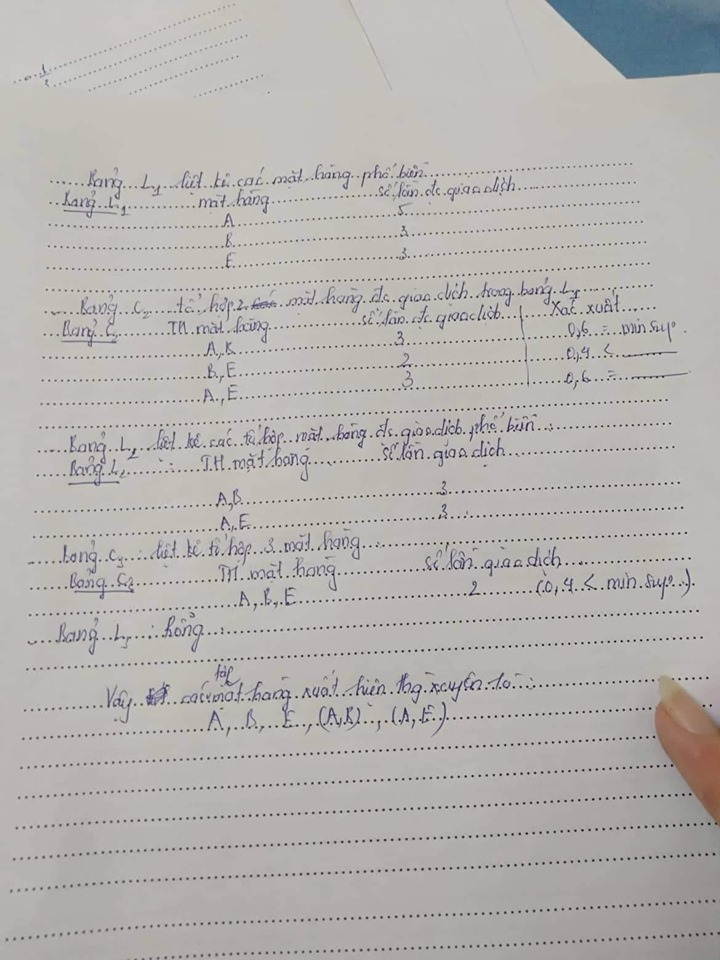 1/2
Bảng L1 liệt kê các mặt hàng phổ biến
Bảng L1 mặt hàng số lần đc giao dịch
A 5
B 3
E 3
Bảng C2 tổ hợp 2 mặt hàng đc giao dịch trong bảng L1
Bảng C2 TH mặt hàng số lần đc giao dịch Xác xuất
A, B 3 0,6 = min sup
B, E 2 0,4 <
A, E 3 0,6 =
Bảng L2 liệt kê các tổ hợp mặt hàng đc giao dịch phổ biến
Bảng L2 : TH mặt hàng số lần giao dịch
A, B 3
A, E 3
Bảng C3 : liệt kê tổ hợp 3 mặt hàng
Bảng C3 TH mặt hàng số lần giao dịch
A, B, E 2 (0,4 < min sup)
Bảng L3 : Rỗng
Vậy các tập mặt hàng xuất hiện thg xuyên là :
A, B, E, (A,B), (A,E)